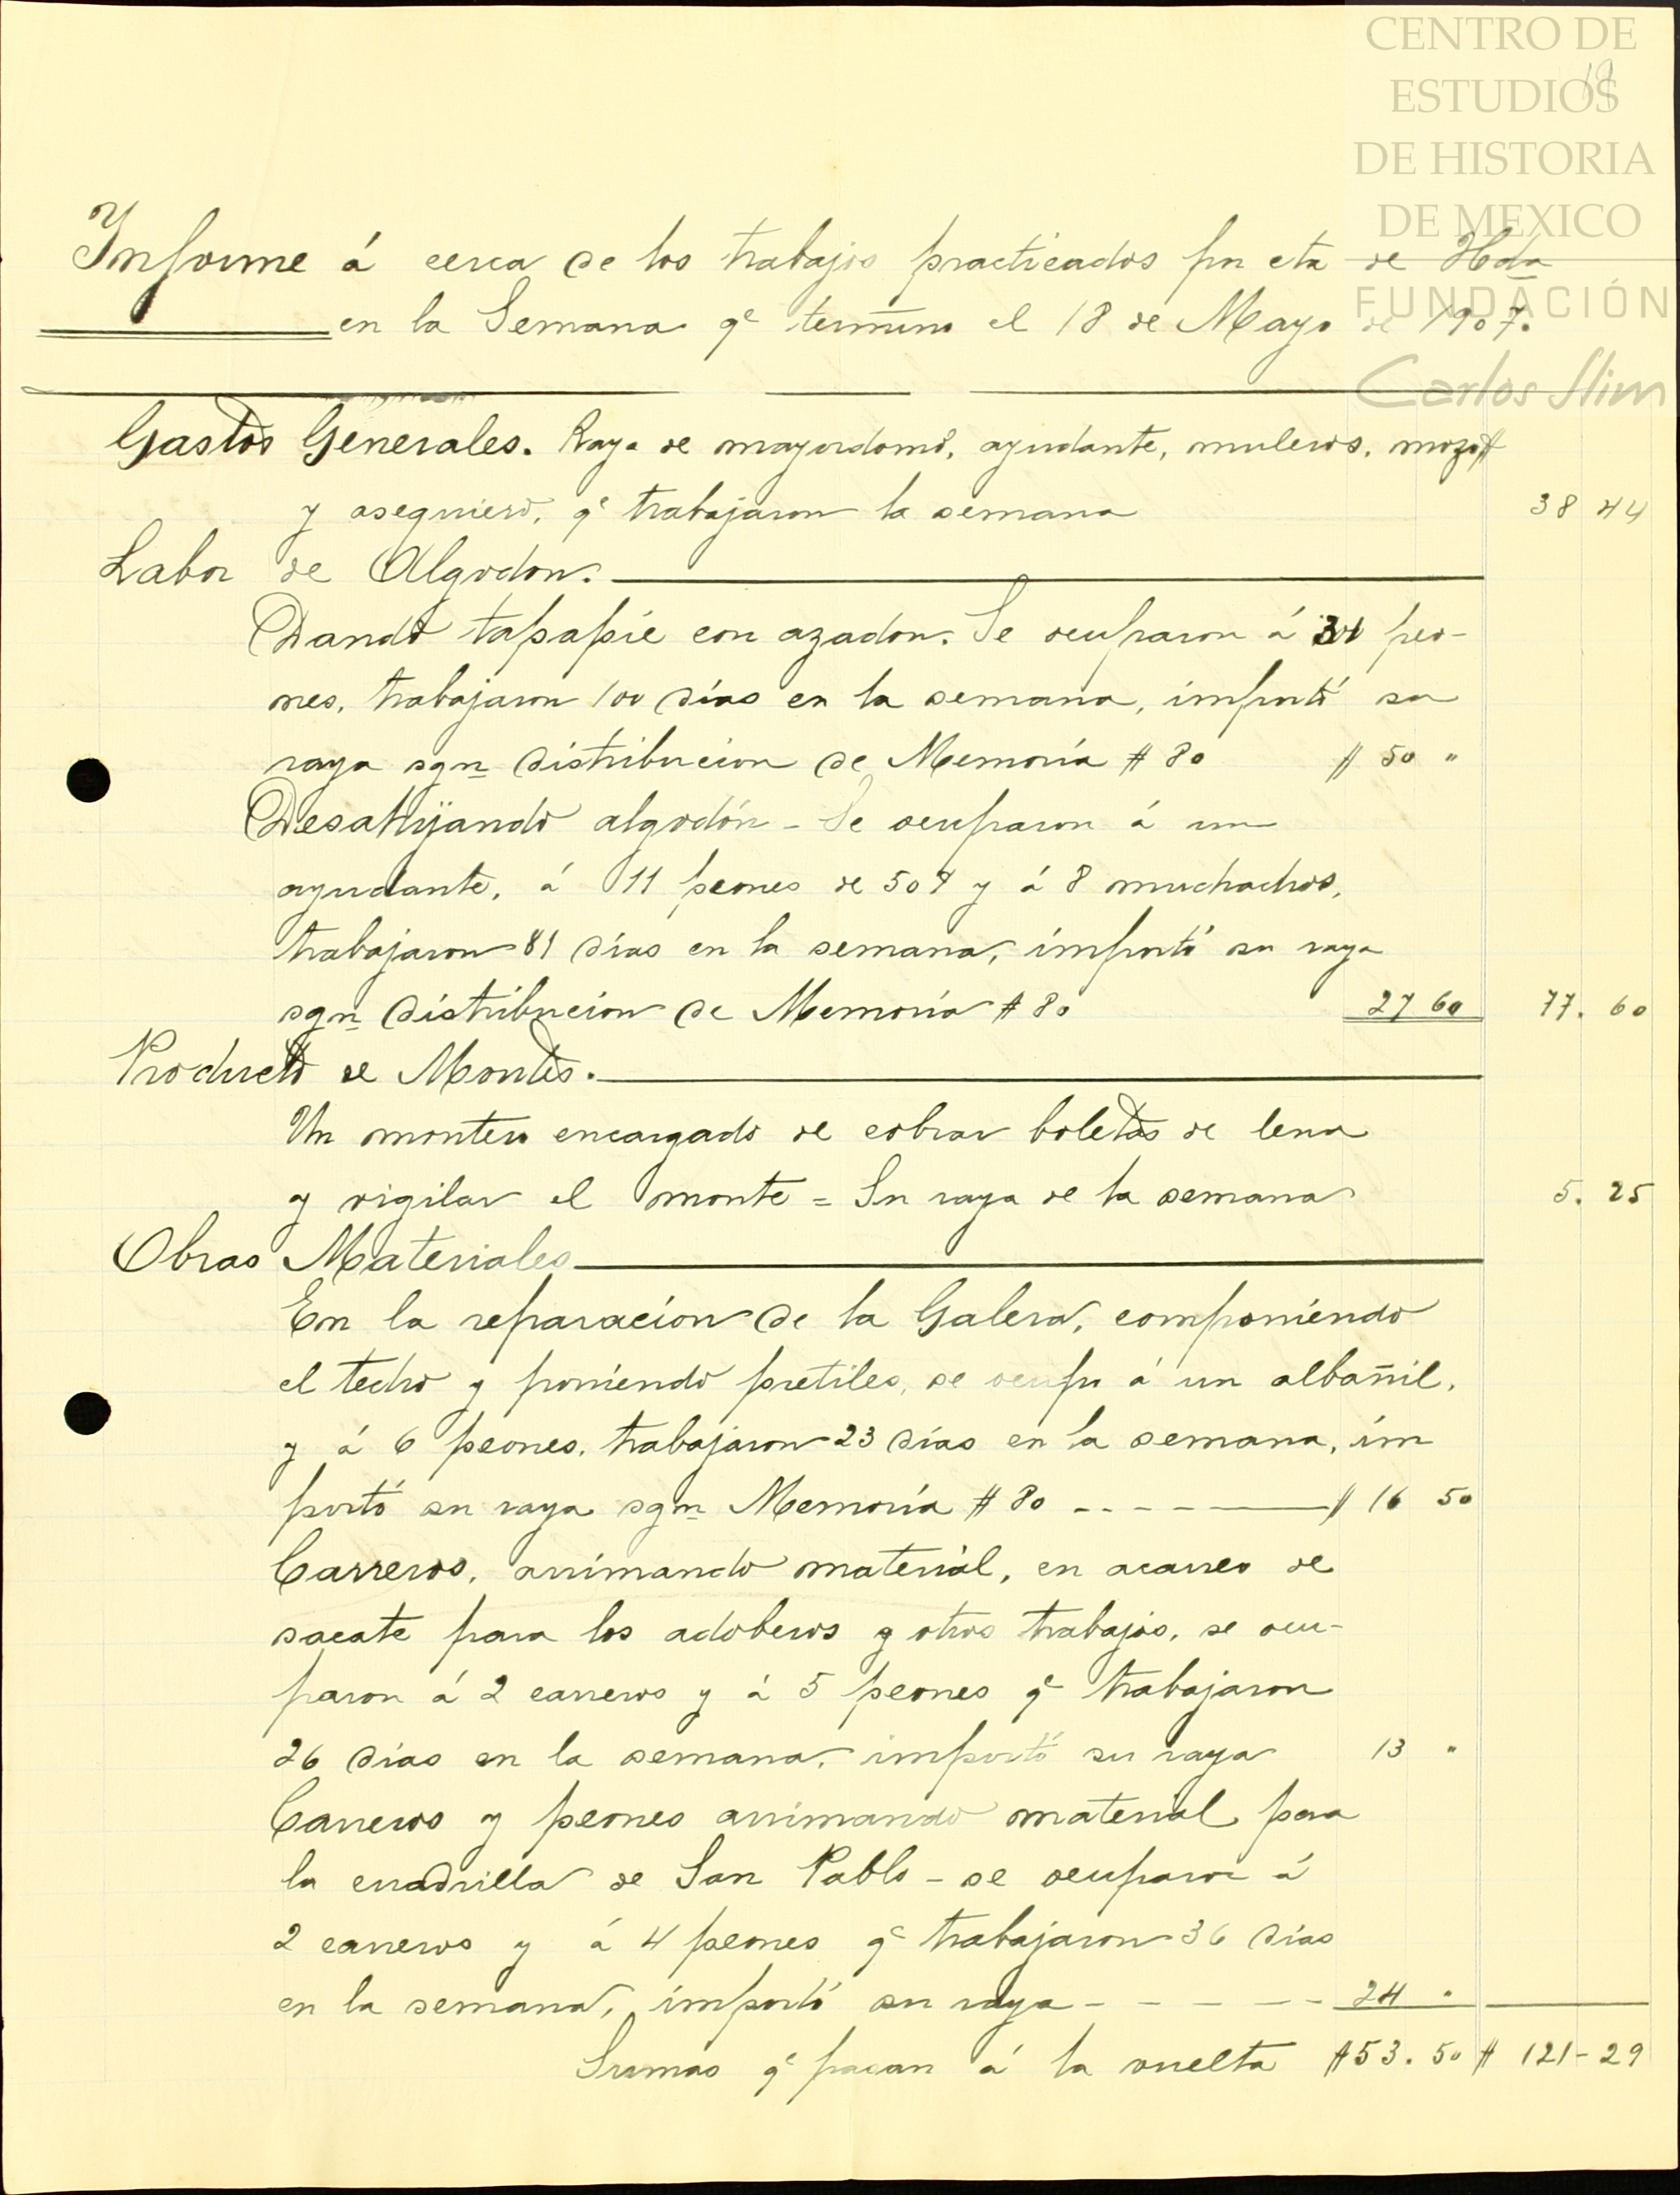 CENTRO DE
ESTUDIOS
DE HISTORIA
DE MEXICO
FUNDACIÓN
Carlos Slim
Informe á cerca de los trabajos practicados por cta de Hda
en la Semana qe termino el 18 de Mayo de 1907.
Gastos Generales. Raya de mayordomo, ayudante, muleros, mozo $
y asequiero, qe trabajaron la semana 38 44
Labor de Algodon.
Dando tapapie con azadon. Se ocuparon á peo-
nes, trabajaron 100 días en la semana, importó su
raya sgn distribucion de Memoria # 80 $ 50 "
Desahijando algodón - Se ocuparon á un
ayudante, á 11 peones de 50¢ y á 8 muchachos,
trabajaron 81 días en la semana, importó su raya
sgn distribucion de Memoria # 80 27 60 77. 60
Producto de Montes.
Un montero encargado de cobrar boletas de lena
y vigilar el monte = Su raya de la semana 5. 25
Obras Materiales
En la reparacion de la Galera, componiendo
el techo y poniendo pretiles, se ocupo á un albañil,
y á 6 peones, trabajaron 23 días en la semana, im
portó su raya sgn Memoria # 80 $ 16 50
Carreros, arrimando material, en acarreo de
sacate para los adoberos y otros trabajos, se ocu-
paron á 2 carreros y á 5 peones qe trabajaron
26 días en la semana, importó su raya 13 "
Carreros y peones arrimando material para
la cuadrilla de San Pablo - se ocuparon á
2 carreros y á 4 peones qe trabajaron 36 días
en la semana, importó su raya - - - - - 24 "
Sumas qe pasan á la vuelta $ 53. 50 $ 121-29